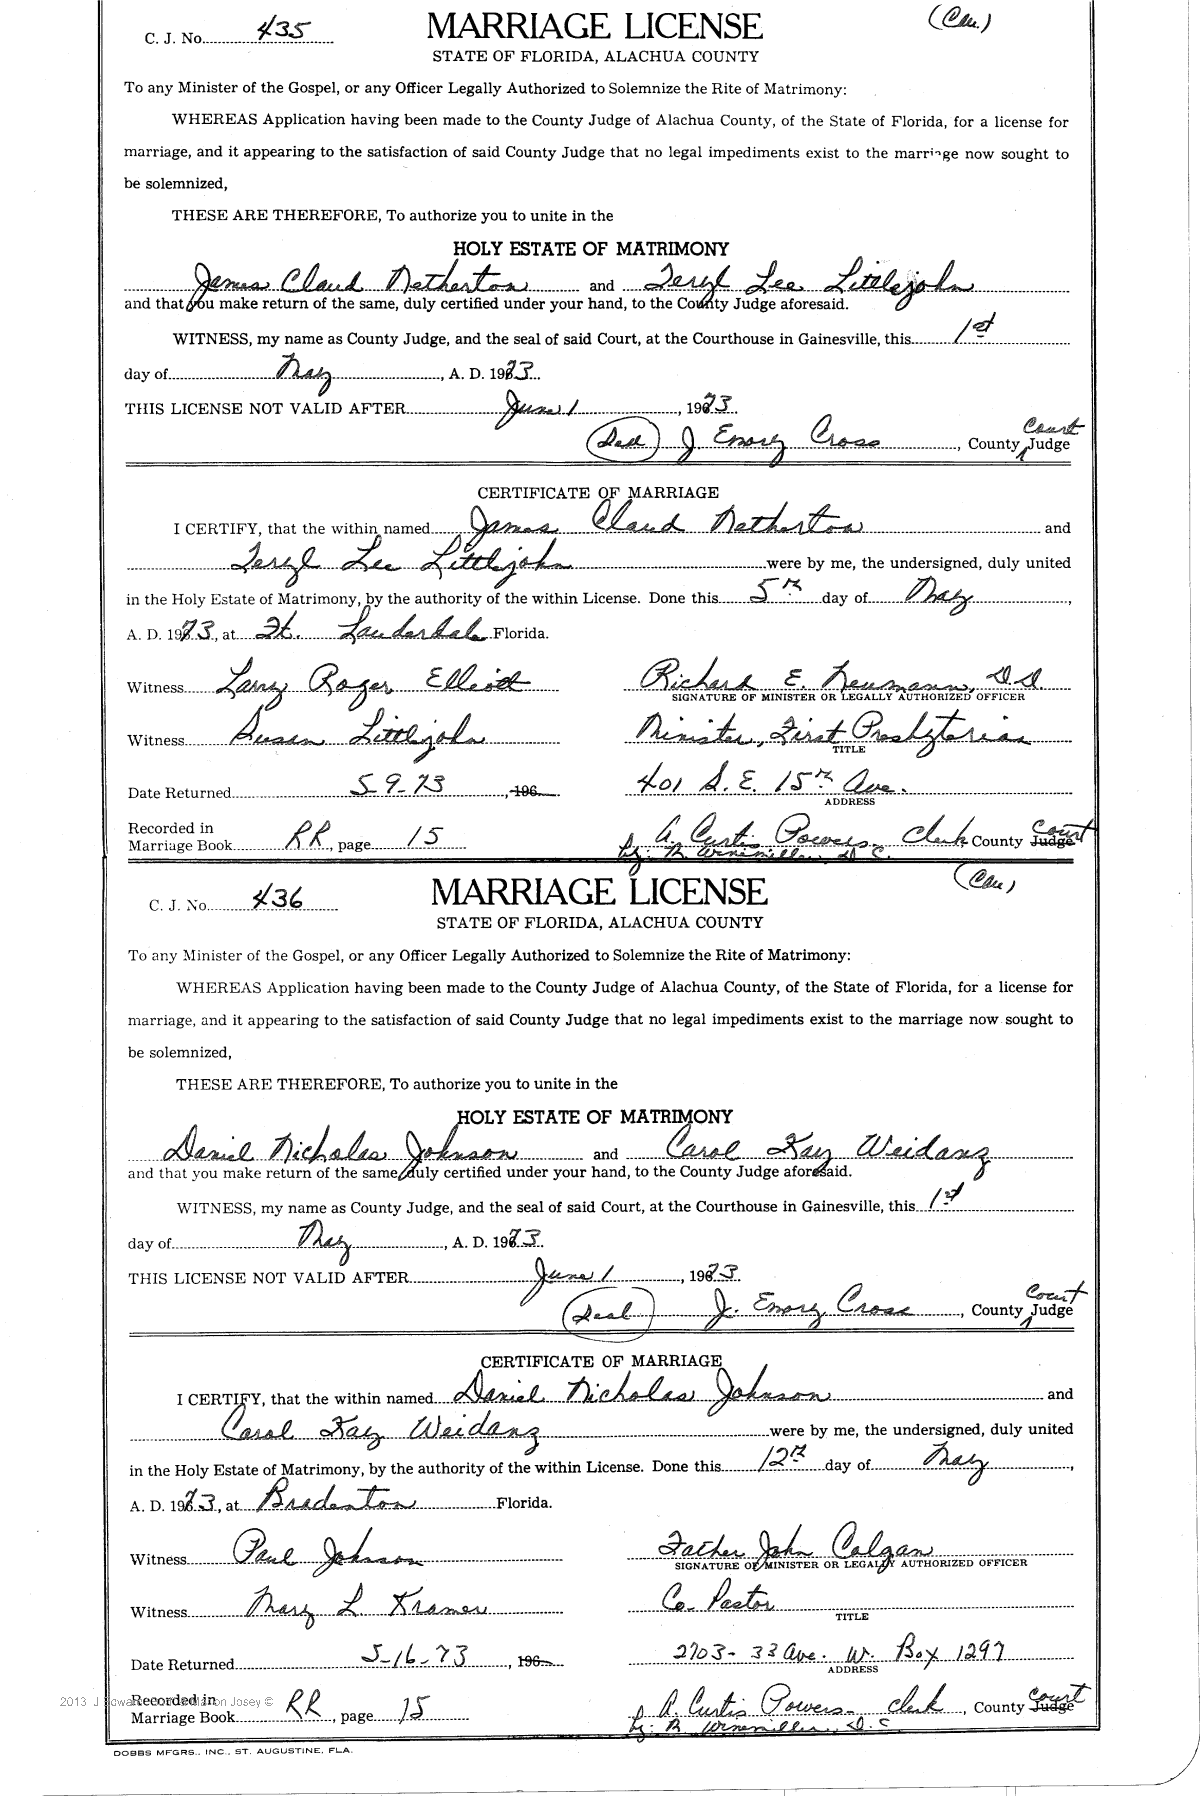 C. J. No. 435
MARRIAGE LICENSE
(Cau.)
STATE OF FLORIDA, ALACHUA COUNTY
To any Minister of the Gospel, or any Officer Legally Authorized to Solemnize the Rite of Matrimony:
WHEREAS Application having been made to the County Judge of Alachua County, of the State of Florida, for a license for
marriage, and it appearing to the satisfaction of said County Judge that no legal impediments exist to the marriage now sought to
be solemnized,
THESE ARE THEREFORE, To authorize you to unite in the
HOLY ESTATE OF MATRIMONY
James Claud Netherton and Teryl Lee Littlejohn
and that you make return of the same, duly certified under your hand, to the County Judge aforesaid.
WITNESS, my name as County Judge, and the seal of said Court, at the Courthouse in Gainesville, this 1st
day of May, A. D. 1973.
THIS LICENSE NOT VALID AFTER June 1, 1973.
(Seal) J. Emory Cross, County Court Judge
CERTIFICATE OF MARRIAGE
I CERTIFY, that the within named James Claud Netherton and
Teryl Lee Littlejohn were by me, the undersigned, duly united
in the Holy Estate of Matrimony, by the authority of the within License. Done this 5th day of May,
A. D. 1973, at Ft. Lauderdale Florida.
Witness Larry Roger Elliott Richard E. Neumann, D.D.
SIGNATURE OF MINISTER OR LEGALLY AUTHORIZED OFFICER
Witness Susan Littlejohn Minister, First Presbyterian
TITLE
Date Returned 5-9-73, 196 401 S. E. 15th Ave.
ADDRESS
Recorded in
Marriage Book RR, page 15 A. Curtis Powers Clerk County Court Judge
by: B. Winemiller, D. C.
C. J. No. 436
MARRIAGE LICENSE
(Cau)
STATE OF FLORIDA, ALACHUA COUNTY
To any Minister of the Gospel, or any Officer Legally Authorized to Solemnize the Rite of Matrimony:
WHEREAS Application having been made to the County Judge of Alachua County, of the State of Florida, for a license for
marriage, and it appearing to the satisfaction of said County Judge that no legal impediments exist to the marriage now sought to
be solemnized,
THESE ARE THEREFORE, To authorize you to unite in the
HOLY ESTATE OF MATRIMONY
Daniel Nicholas Johnson and Carol Kay Weidanz
and that you make return of the same, duly certified under your hand, to the County Judge aforesaid.
WITNESS, my name as County Judge, and the seal of said Court, at the Courthouse in Gainesville, this 1st
day of May, A. D. 1973.
THIS LICENSE NOT VALID AFTER June 1, 1973.
(Seal) J. Emory Cross, County Court Judge
CERTIFICATE OF MARRIAGE
I CERTIFY, that the within named Daniel Nicholas Johnson and
Carol Kay Weidanz were by me, the undersigned, duly united
in the Holy Estate of Matrimony, by the authority of the within License. Done this 12th day of May,
A. D. 1973, at Bradenton Florida.
Witness Paul Johnson Father John Colgan
SIGNATURE OF MINISTER OR LEGALLY AUTHORIZED OFFICER
Witness Mary L Kramer Co-Pastor
TITLE
Date Returned 5-16-73, 196 2703-33 Ave. W. Box 1297
ADDRESS
2013 J Josey ©
Recorded in
Marriage Book RR, page 15 A. Curtis Powers Clerk, County Court Judge
by: B. Winemiller, D. C.
DOBBS MFGRS., INC., ST. AUGUSTINE, FLA.